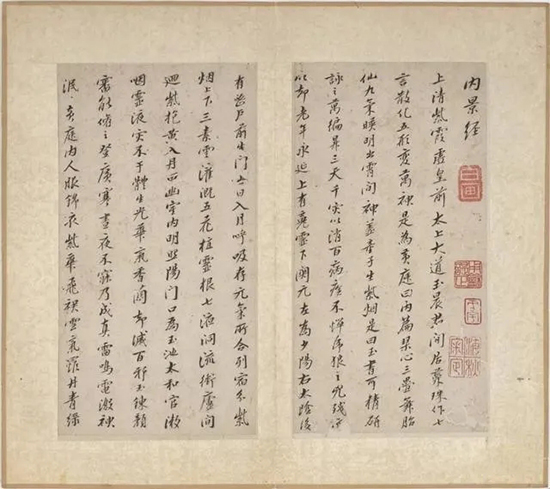 內景經
上清紫霞虛皇前太上大道玉晨君閒居蘂珠作七
言散化五形變萬神是為黃庭曰內篇琴心三疊舞胎
仙九氣暎明出霄間神蓋童子生紫烟是曰玉書可精研
詠之萬徧昇三天千灾以消百病痊不憚虎狼之兇殘亦
以却老年永延上有魂靈下關元左為少陽右太陰後
有密戶前生門出日入月呼吸存元氣所合列宿分紫
烟上下三素雲灌溉五花植靈根七液洞流衝廬間
迴紫抱黃入丹田幽室內明照陽門口為玉池太和官漱
咽靈液灾不干體生光華氣香蘭却滅百邪玉鍊顏
審能修之登廣寒晝夜不寐乃成真雷鳴電激神
泯黃庭內人服錦衣紫華飛裙雲氣羅丹青綠